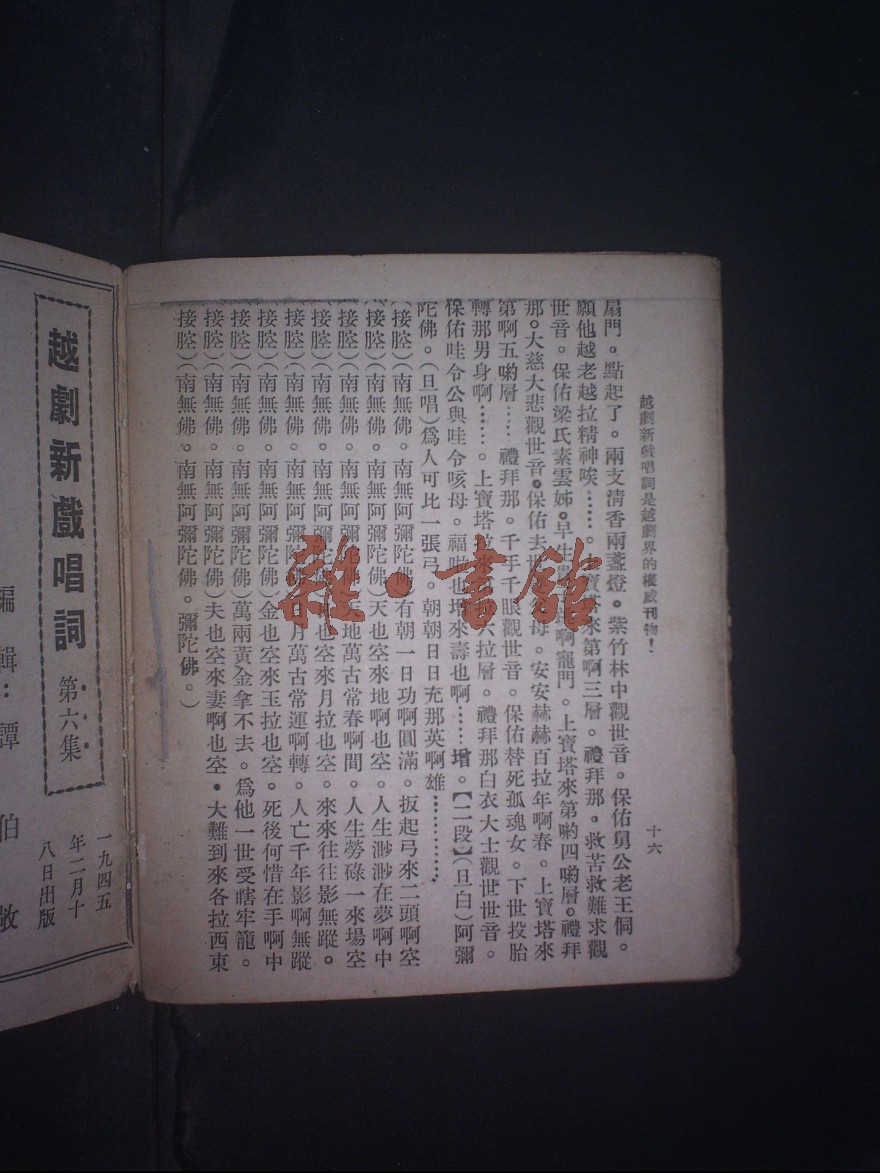 越劇新戲唱詞是越劇界的權威刊物！
十六
扇門。點起了。兩支淸香兩盞燈。紫竹林中觀世音。保佑舅公老王侗。
願他越老越拉精神唉……。寶塔來第啊三層。禮拜那。救苦救難求觀
世音。保佑梁氏素雲姊。早生啊龍門。上寶塔來第喲四喲層。禮拜
那。大慈大悲觀世音。保佑去世母。安安赫赫百拉年啊春。上寶塔來
第啊五喲層……禮拜那。千手千眼觀世音。保佑替死孤魂女。下世投胎
轉那男身啊……。上寶塔六拉層。禮拜那白衣大士觀世世音。
保佑哇令公與哇令咳母。福啦也增來壽也啊……增。【二段】（旦白）阿彌
陀佛。（旦唱）爲人可比一張弓。朝朝日日充那英啊雄…………
（接腔）（南無佛。南無阿彌陀佛）有朝一日功啊圓滿。扳起弓來二頭啊空
（接腔）（南無佛。南無阿彌陀佛）天也空來地啊也空。人生渺渺在夢啊中
接腔）（南無佛。南無阿彌陀佛）天地萬古常春啊間。人生勞碌一來場空
接腔）（南無佛。南無阿彌陀佛）也空來月拉也空。來來往往影無蹤。
接腔）（南無佛。南無阿彌陀佛）日月萬古常運啊轉。人亡千年影啊無蹤
接腔）（南無佛。南無阿彌陀佛）金也空來玉拉也空。死後何惜在手啊中
接腔）（南無佛。南無阿彌陀佛）萬兩黃金拿不去。爲他一世受瞎牢籠。
接腔）（南無佛。南無阿彌陀佛）夫也空來妻啊也空。大難到來各拉西東
接腔）（南無佛。南無阿彌陀佛。彌陀佛。）
雜·書館
一九四五
年二月十
八日出版
越劇新戲唱詞 第六集
編輯：譚伯敏